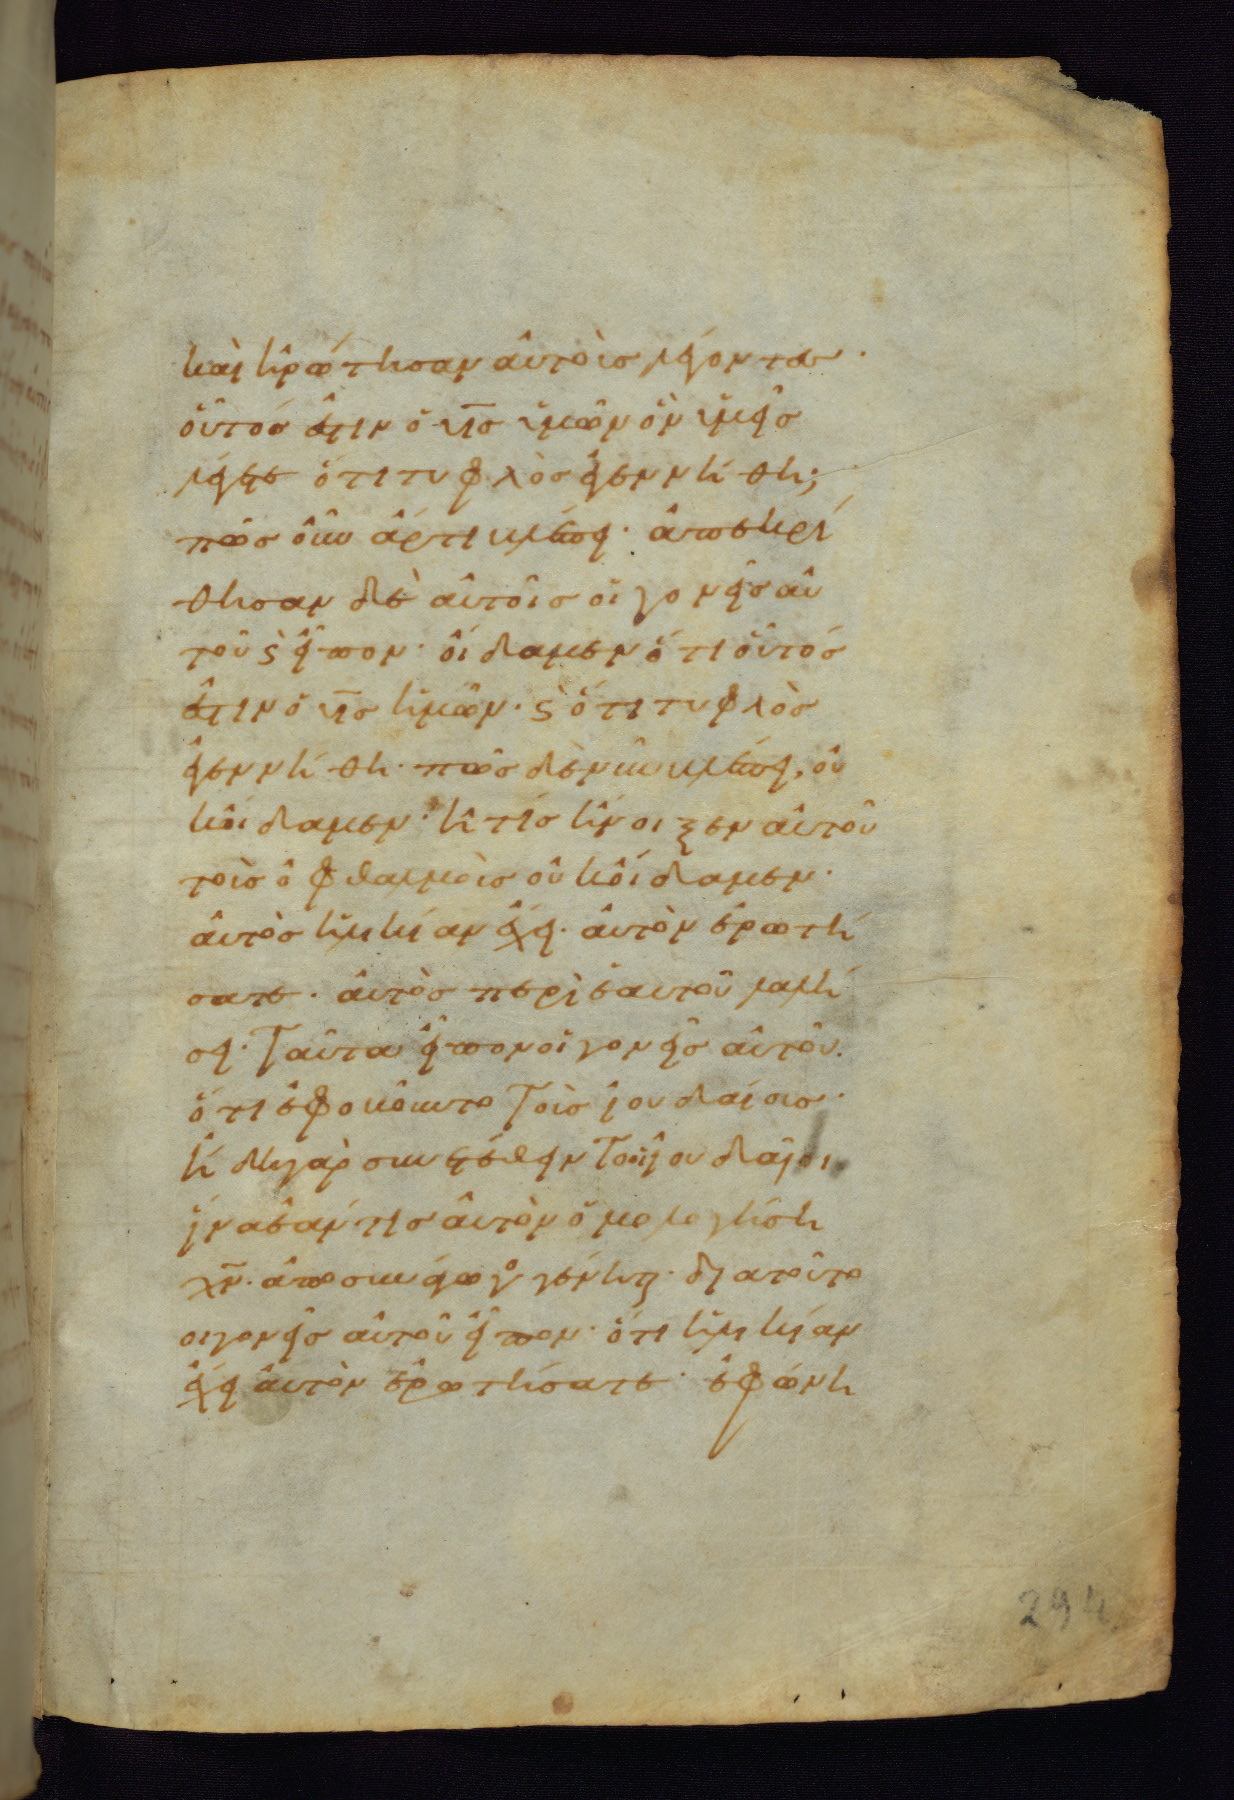 καὶ ἠρώτησαν αὐτοὺς λέγοντες·
οὗτός ἐστιν ὁ υἱ̅ς ὑμῶν ὃν ὑμεῖς
λέγετε ὅτι τυφλὸς ἐγεννήθη;
πῶς οὖν ἄρτι βλέπει· ἀπεκρί
θησαν δὲ αὐτοῖς οἱ γονεῖς αὐ
τοῦ ϛ̀ εἶπον· οἴδαμεν ὅτι οὗτός
ἐστιν ὁ υἱ̅ς ἡμῶν· ϛ̀ ὅτι τυφλὸς
ἐγεννήθη· πῶς δὲ νῦν βλέπει, οὐ
κ οἴδαμεν· ἢ τίς ἤνοιξεν αὐτοῦ
τοὺς ὀφθαλμοὺς οὐκ οἴδαμεν·
αὐτὸς ἡλικίαν ἔχει· αὐτὸν ἐρωτή
σατε· αὐτὸς περὶ ἑαυτοῦ λαλή
σει· Ταῦτα εἶπον οἱ γονεῖς αὐτοῦ·
ὅτι ἐφοβοῦντο τοὺς ἰουδαίους·
ἤδη γὰρ συνετέθειντο οἱ ἰουδαῖοι
ἵνα ἐάν τις αὐτὸν ὁμολογήσῃ
χν̅· ἀποσυνάγωγος γένηται· διατοῦτο
οι γονεῖς αὐτοῦ εἶπον· ὅτι ἡλικίαν
ἔχει αὐτὸν ἐρωτήσατε· ἐφώνη
294